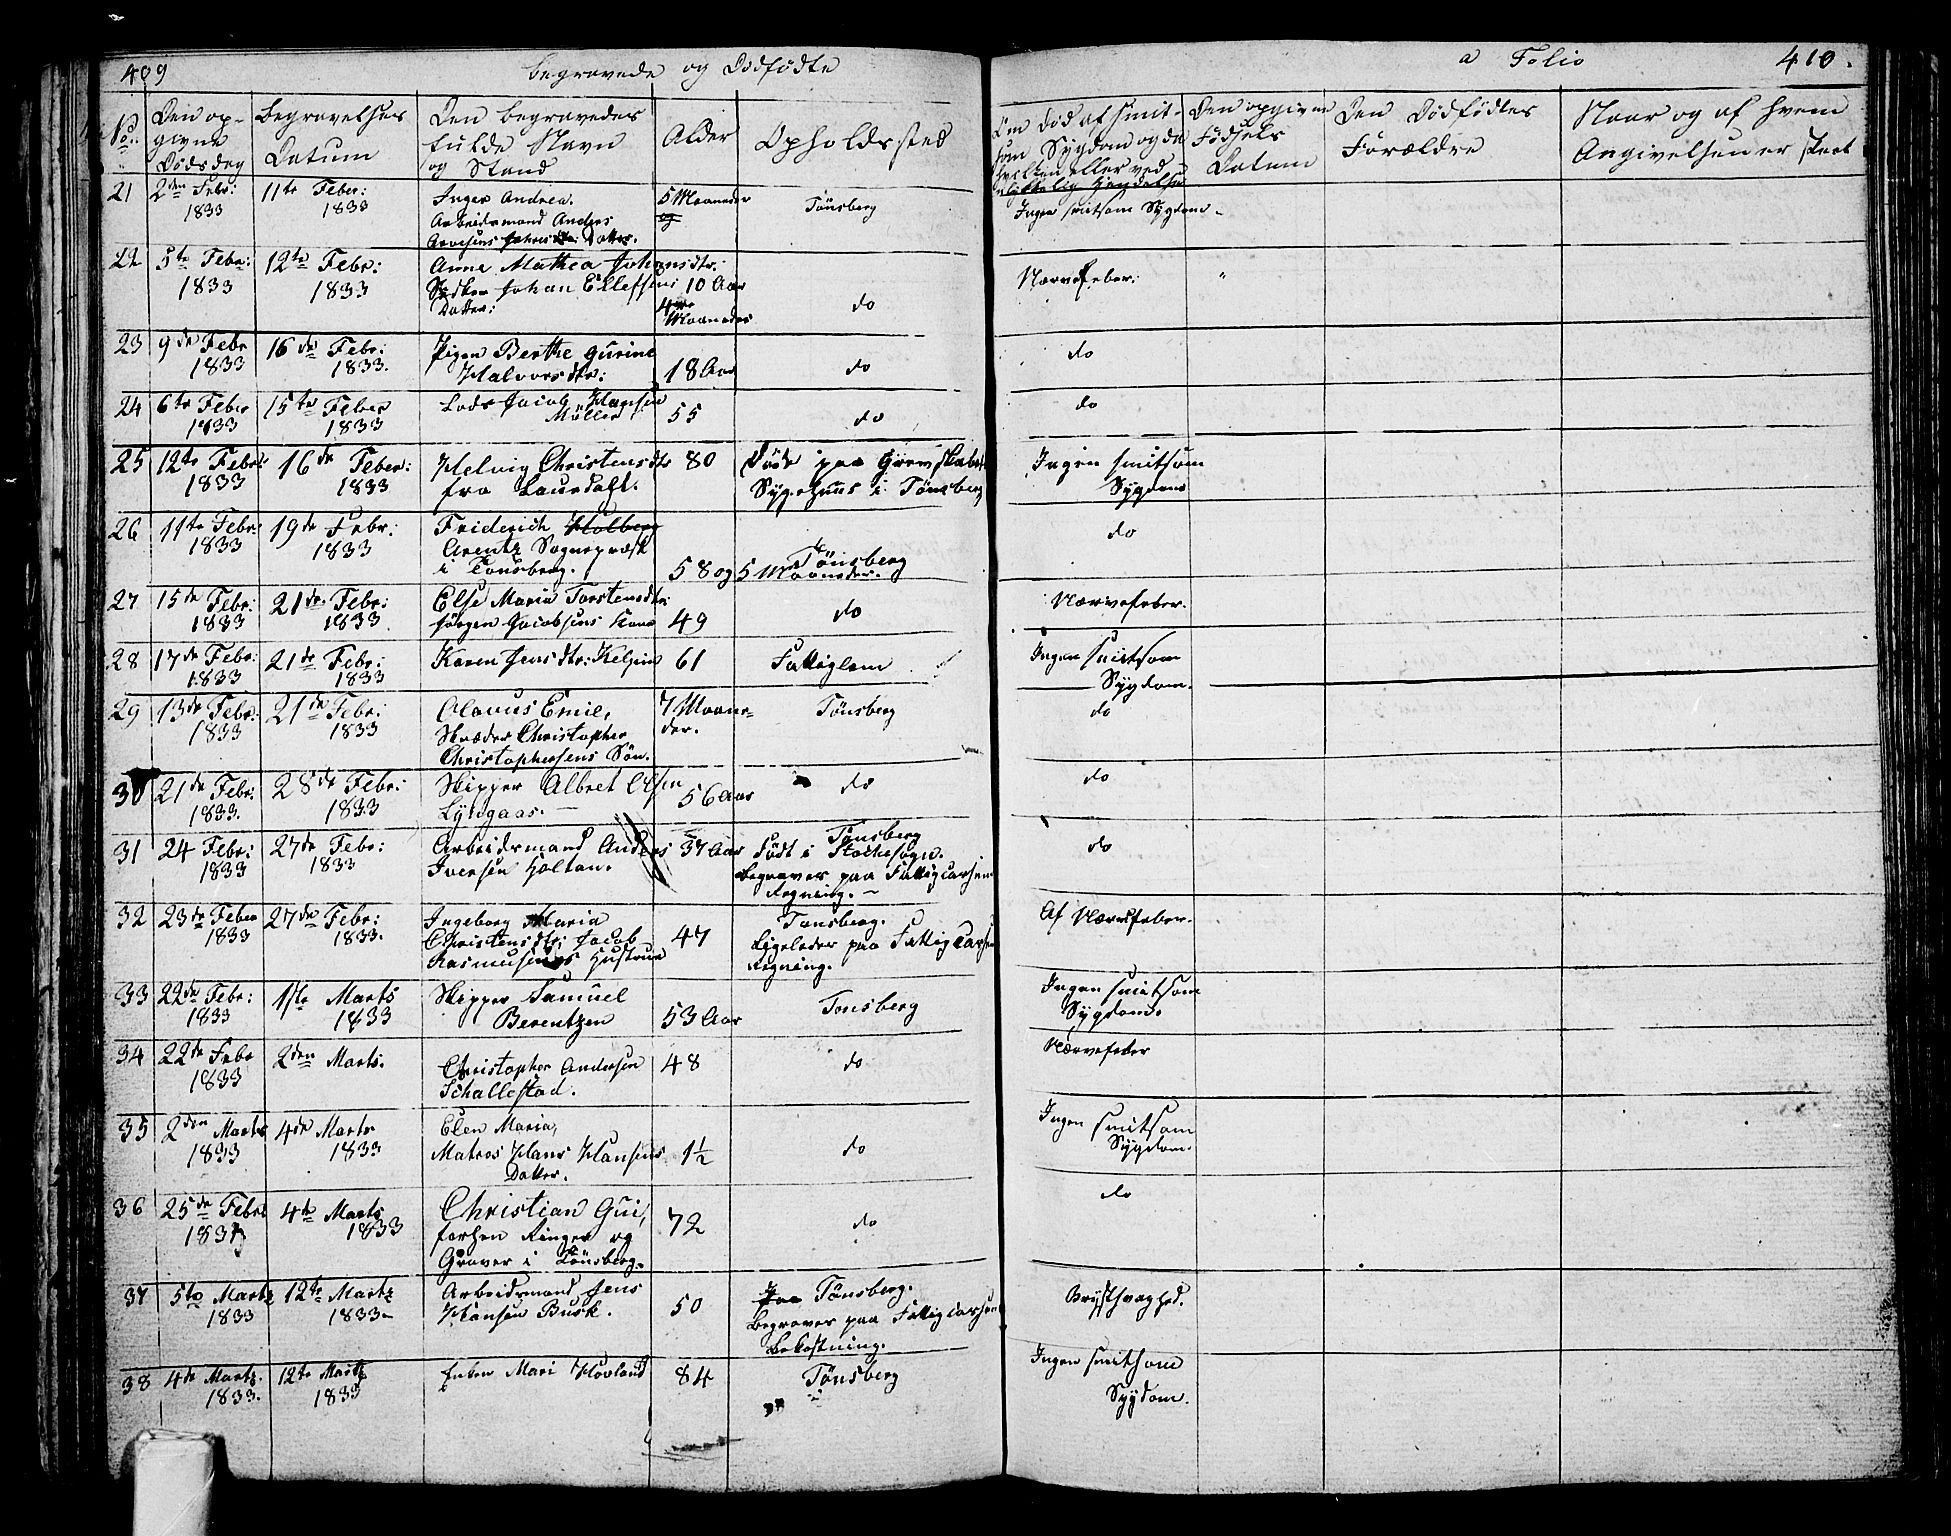 409 Begravede og Dödfödte
No. Den opgivne Dödsdag Begravelses Datum Den begravedes fulde Navn og Stand Alder Opholdssted
21 2den Febr: 1833 11te Feber: 1833 Inger Andrea. 5 Maaneder Tönsberg
Arbeidsmand Andres
Datter.
22 5te Febr: 1833 12te Febr: 1833 Anne Mathea Johansdtr: 10 Aar
Johan Ellefsens
Datter: 4 Maaneder do
23 9de Febr 1833 16de Febr: 1833. Pigen Berthe Gurine
Halvorsdtr: 18 Aar do
24 6te Feber 1833 15te Feber 1833 Lods Jacob Hansen
Möller 55 do
25 12te Febr: 1833 16de Feber: 1833 Helvig Christensdtr 80 Döde paa Grevskabets
fra Laurdahl. Sygehuus i Tönsberg
26 11te Febr: 1833 19de Febr: 1833 Friderich Holberg
Arentz Sognepræst
i Tönsberg. 58 og 5 Maaneder. Tönsberg
27 15de Febr: 1833 21de Febr: 1833 Else Maria Torstensdtr:
Jörgen Jacobsens Kone 49 do
28 17de Febr: 1833 21de Febr: 1833 Karen Jensdtr: 61 Fattiglem
29 13de Febr: 1833 21de Febr: 1833 Olavus Emil, 7 Maaneder. Tönsberg
Skræder Christopher
Christophersens Sön.
30 21de Febr: 1833. 28de Febr: 1833 Skipper Albret Olsen
Lyngaas. 56 Aar do
31 24 Febr: 1833 27de Febr: 1833 Arbeidsmand Anders 37 Aar Tönsberg
Iversen Holtan. Födt i Stockesogn.
Begraves paa Fattigcassens
Regning.
32 23de Feber 1833 27de Febr: 1833. Ingeborg Maria Tönsberg.
Christensdtr: Jacob 47 Ligeledes paa Fattigcassens
Rasmusens Hustrue Regning.
33 22de Febr: 1833 1ste Marts 1833 Skipper Samuel
Berentzen 53 Aar Tonsberg
34 22de Febr 1833 2den Marts. Christopher Andersen 48 do
Schallestad.
35 2den Marts 1833 4de Marts 1833 Elen Maria,
Matros Hans Hansens 1½ do
Datter.
36 25de Febr 1833 4de Marts 1833 Christian
Ringer og 72 do
Graver i Tönsberg.
37 5te Martz 1833 12te Martz 1833 Arbeidsmand Jens Paa Tönsberg.
Hansen Busk. 50 Begraves paa Fattigcassens
Bekostning.
38 4de Martz. 1833. 12te Martz 1833 Enken Mari Hovland 84 Tönsberg
a Folio 410.
Om död af smitsom Sygdom og da hvilken eller ved ulykkelig Hendelse Den opgivne Födsels Datum Den Dödfödtes Forældre Naar og af hvem Angivelsen er skeet
Ingen smitsom Sygdom.
Nærvefeber. "
do
do
Ingen smitsom
Sygdom
do
Nærvefeber.
Ingen smitsom
Sygdom.
do
do
do
Af Nærvefeber.
Ingen smitsom
Sygdom.
Nærvefeber
Ingen smitsom
Sygdom.
do
Brystsvaghed.
Ingen smitsom
Sygdom.